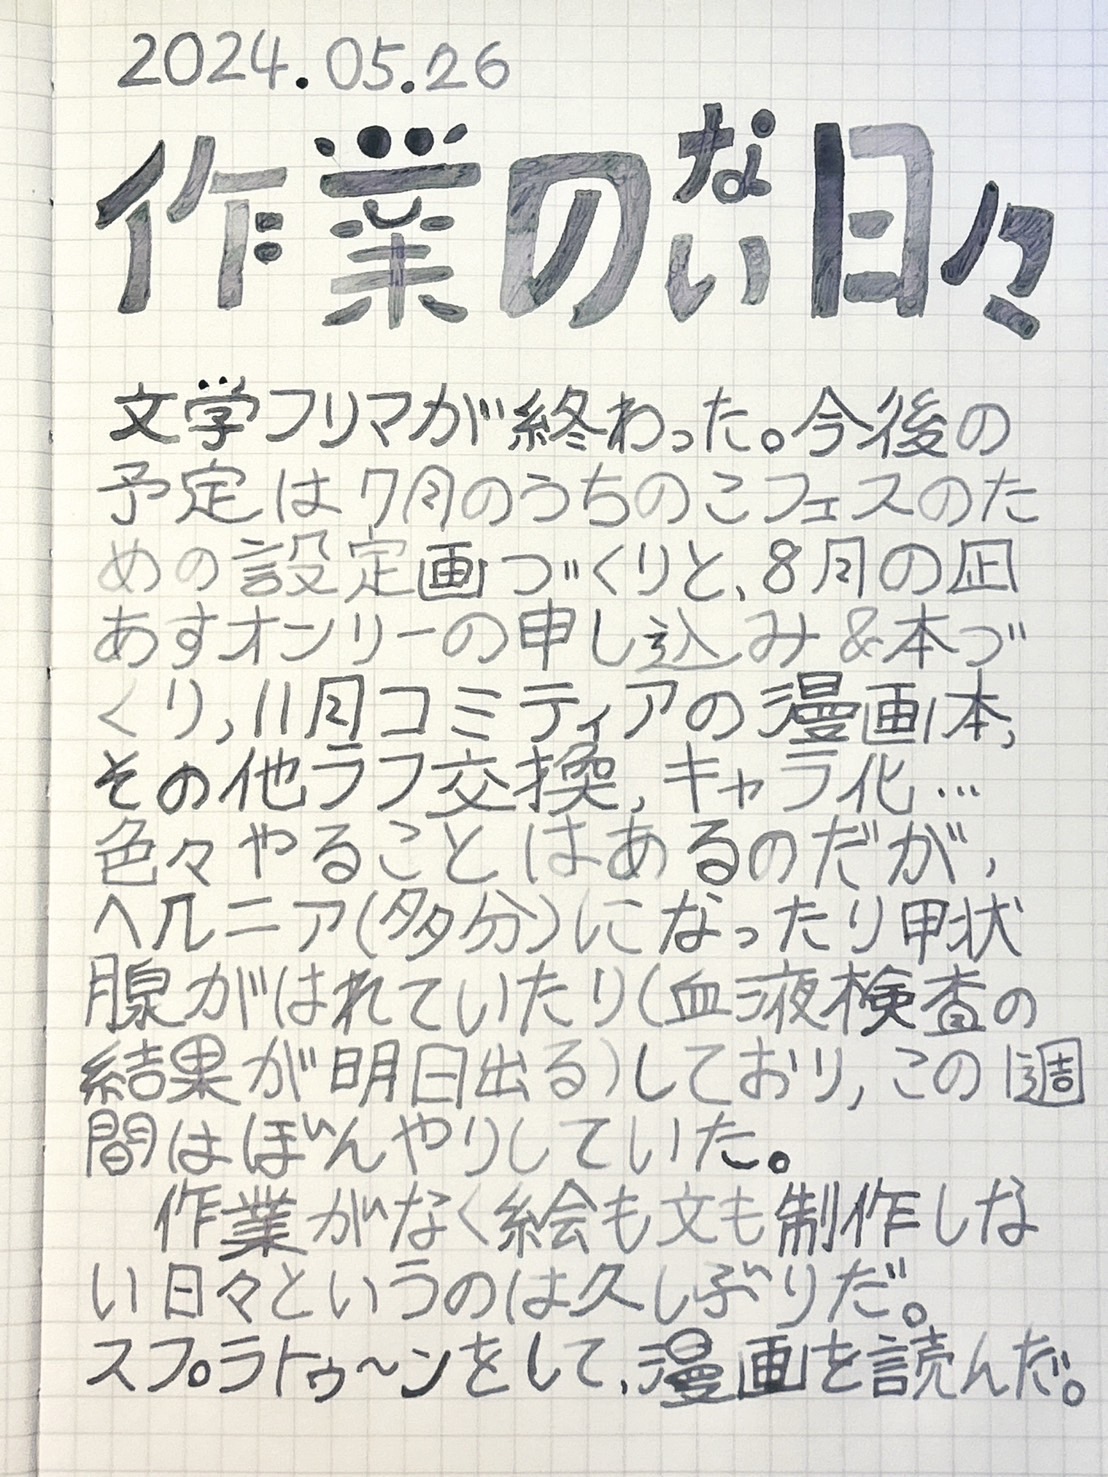 2024.05.26
作業のない日々
文学フリマが終わった。今後の
予定は7月のうちのこフェスのた
めの設定画づくりと、8月の凪
あすオンリーの申し込み&本づ
くり,11月コミティアの漫画本,
その他ラフ交換,キャラ化…
色々やることはあるのだが,
ヘルニア(多分)になったり甲状
腺がはれていたり(血液検査の
結果が明日出る)しており,この1週
間はぼんやりしていた。
作業がなく絵も文も制作しな
い日々というのは久しぶりだ。
スプラトゥ〜ンをして、漫画を読んだ。